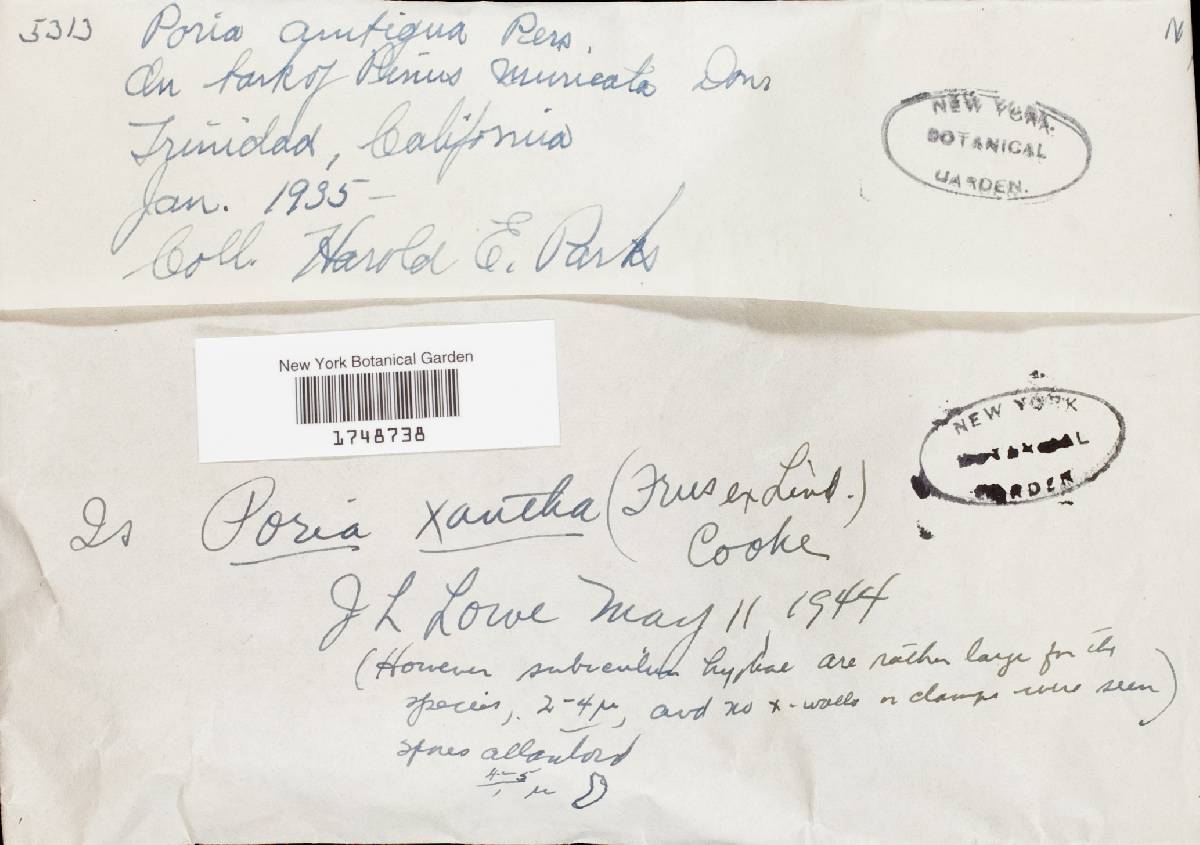 5313 Poria ambigua Pers.
On bark of Pinus muricata Don
Trinidad, California
Jan. 1935 –
Coll. Harold E. Parks
N
NEW YORK
BOTANICAL
GARDEN.
New York Botanical Garden
1748738
NEW YORK
BOTANICAL
GARDEN
Is Poria xantha (Fries ex Lind.)
Cooke
J L Lowe May 11, 1944
(However subiculum hyphae are rather large for the
species, 2-4µ, and no x-walls or clamps were seen)
spores allantoid
4-5
µ